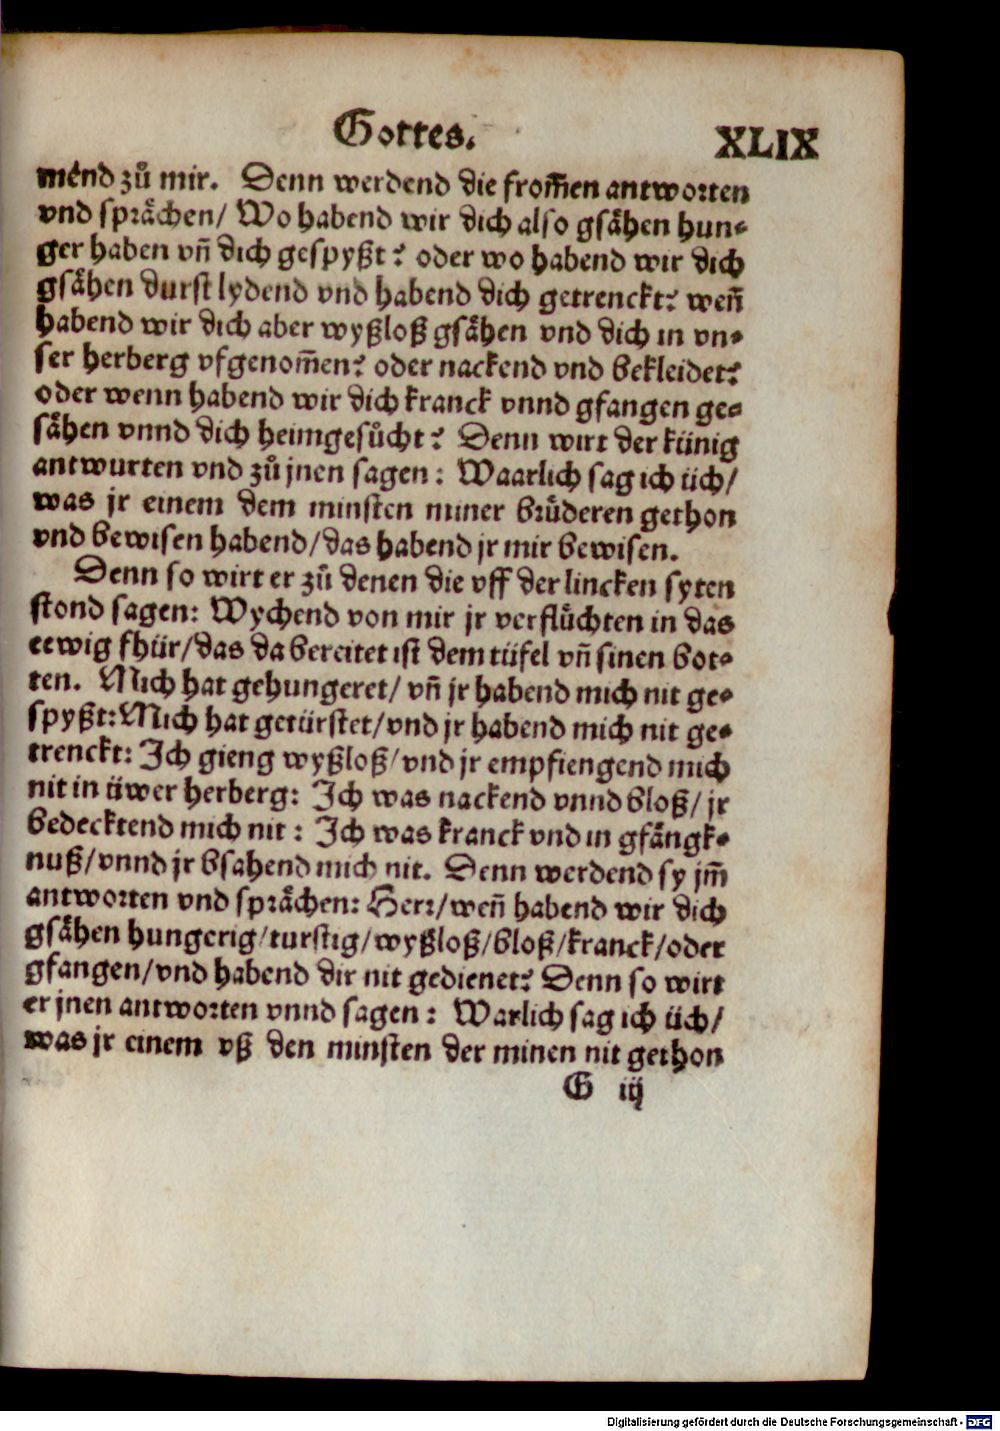 Gottes.
XLIX
mend zů mir. Denn werdend die from̃en antworten
vnd spraͤchen/ Wo habend wir dich also gsaͤhen hun-
ger haben vñ dich gespyßt? oder wo habend wir dich
gsaͤhen durst lydend vnd habend dich getrenckt? weñ
habend wir dich aber wyßloß gsaͤhen vnd dich in vn-
ser herberg vfgenom̃en? oder nackend vnd bekleidet?
oder wenn habend wir dich kranck vnnd gfangen ge-
saͤhen vnnd dich heimgesůcht? Denn wirt der künig
antwurten vnd zů jnen sagen: Waarlich sag ich üch/
was jr einem dem minsten miner brüderen gethon
vnd bewisen habend/das habend jr mir bewisen.
Denn so wirt er zů denen die vff der lincken syten
stond sagen: Wychend von mir jr verflůchten in das
eewig fhür/das da bereitet ist dem tüfel vñ sinen bot-
ten. Mich hat gehungeret/ vñ jr habend mich nit ge-
spyßt: Mich hat getürstet/vnd jr habend mich nit ge-
trenckt: Ich gieng wyßloß/vnd jr empfiengend mich
nit in üwer herberg: Ich was nackend vnnd bloß/ jr
bedecktend mich nit: Ich was kranck vnd in gfaͤngk-
nuß/vnnd jr bsahend mich nit. Denn werdend sy jm̃
antworten vnd spraͤchen: Herr/weñ habend wir dich
gsaͤhen hungerig/turstig/wyßloß/bloß/kranck/oder
gfangen/vnd habend dir nit gedienet? Denn so wirt
er jnen antworten vnnd sagen: Warlich sag ich üch/
was jr einem vß den minsten der minen nit gethon
G iij
Digitalisierung gefördert durch die Deutsche Forschungsgemeinschaft - DFG